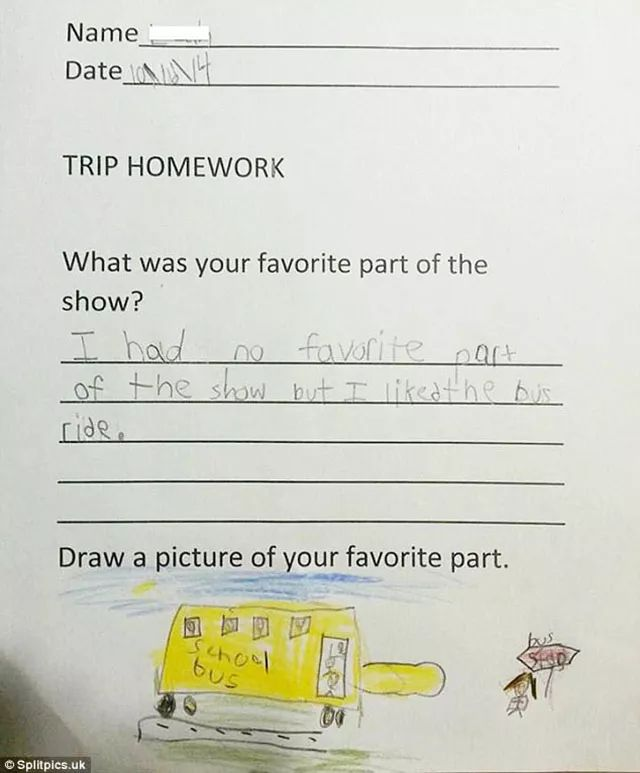 Name
Date 10\16\14
TRIP HOMEWORK
What was your favorite part of the
show?
I had no favorite part
of the show but I liked the bus
ride.
Draw a picture of your favorite part.
school
bus
bus
stop
© Splitpics.uk